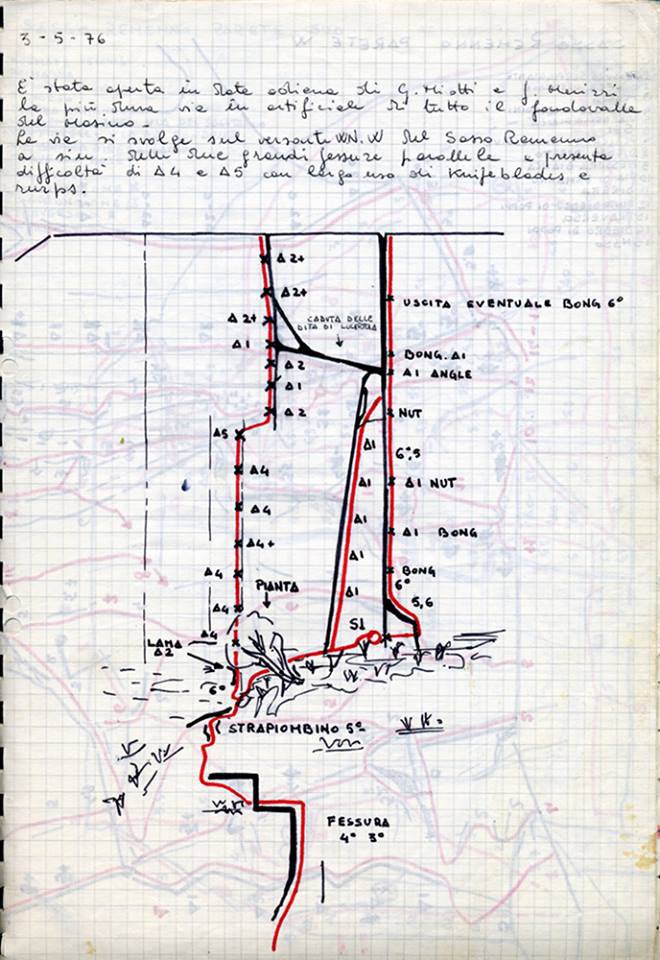 3-5-76
È stata aperta in data odierna da G. Miotti e J. Merizzi
la più dura via in artificiale di tutto il fondovalle
del Masino.
La via si svolge sul versante WN.W del Sasso Remenno
a sin. delle due grandi fessure parallele e presenta
difficoltà di A4 e A5 con largo uso di Knifeblades e
rurps.
A2+
A2+
USCITA EVENTUALE BONG 6°
A2+
CADUTA DELLE
DITA DI LUCERTOLA
A1
BONG. A1
A2
A1 ANGLE
A1
A2
NUT
A5
A1
6°,5
A4
A1
A1 NUT
A4
A1
A4+
A1 BONG
A1
A4
BONG
PIANTA
6°
A1
A4
5,6
S1
A4
LAMA
A2
6°
STRAPIOMBINO 5°
FESSURA
4° 3°